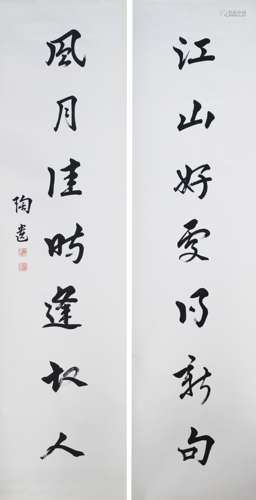 江山好處得新句
風月佳時逢故人
陶遺